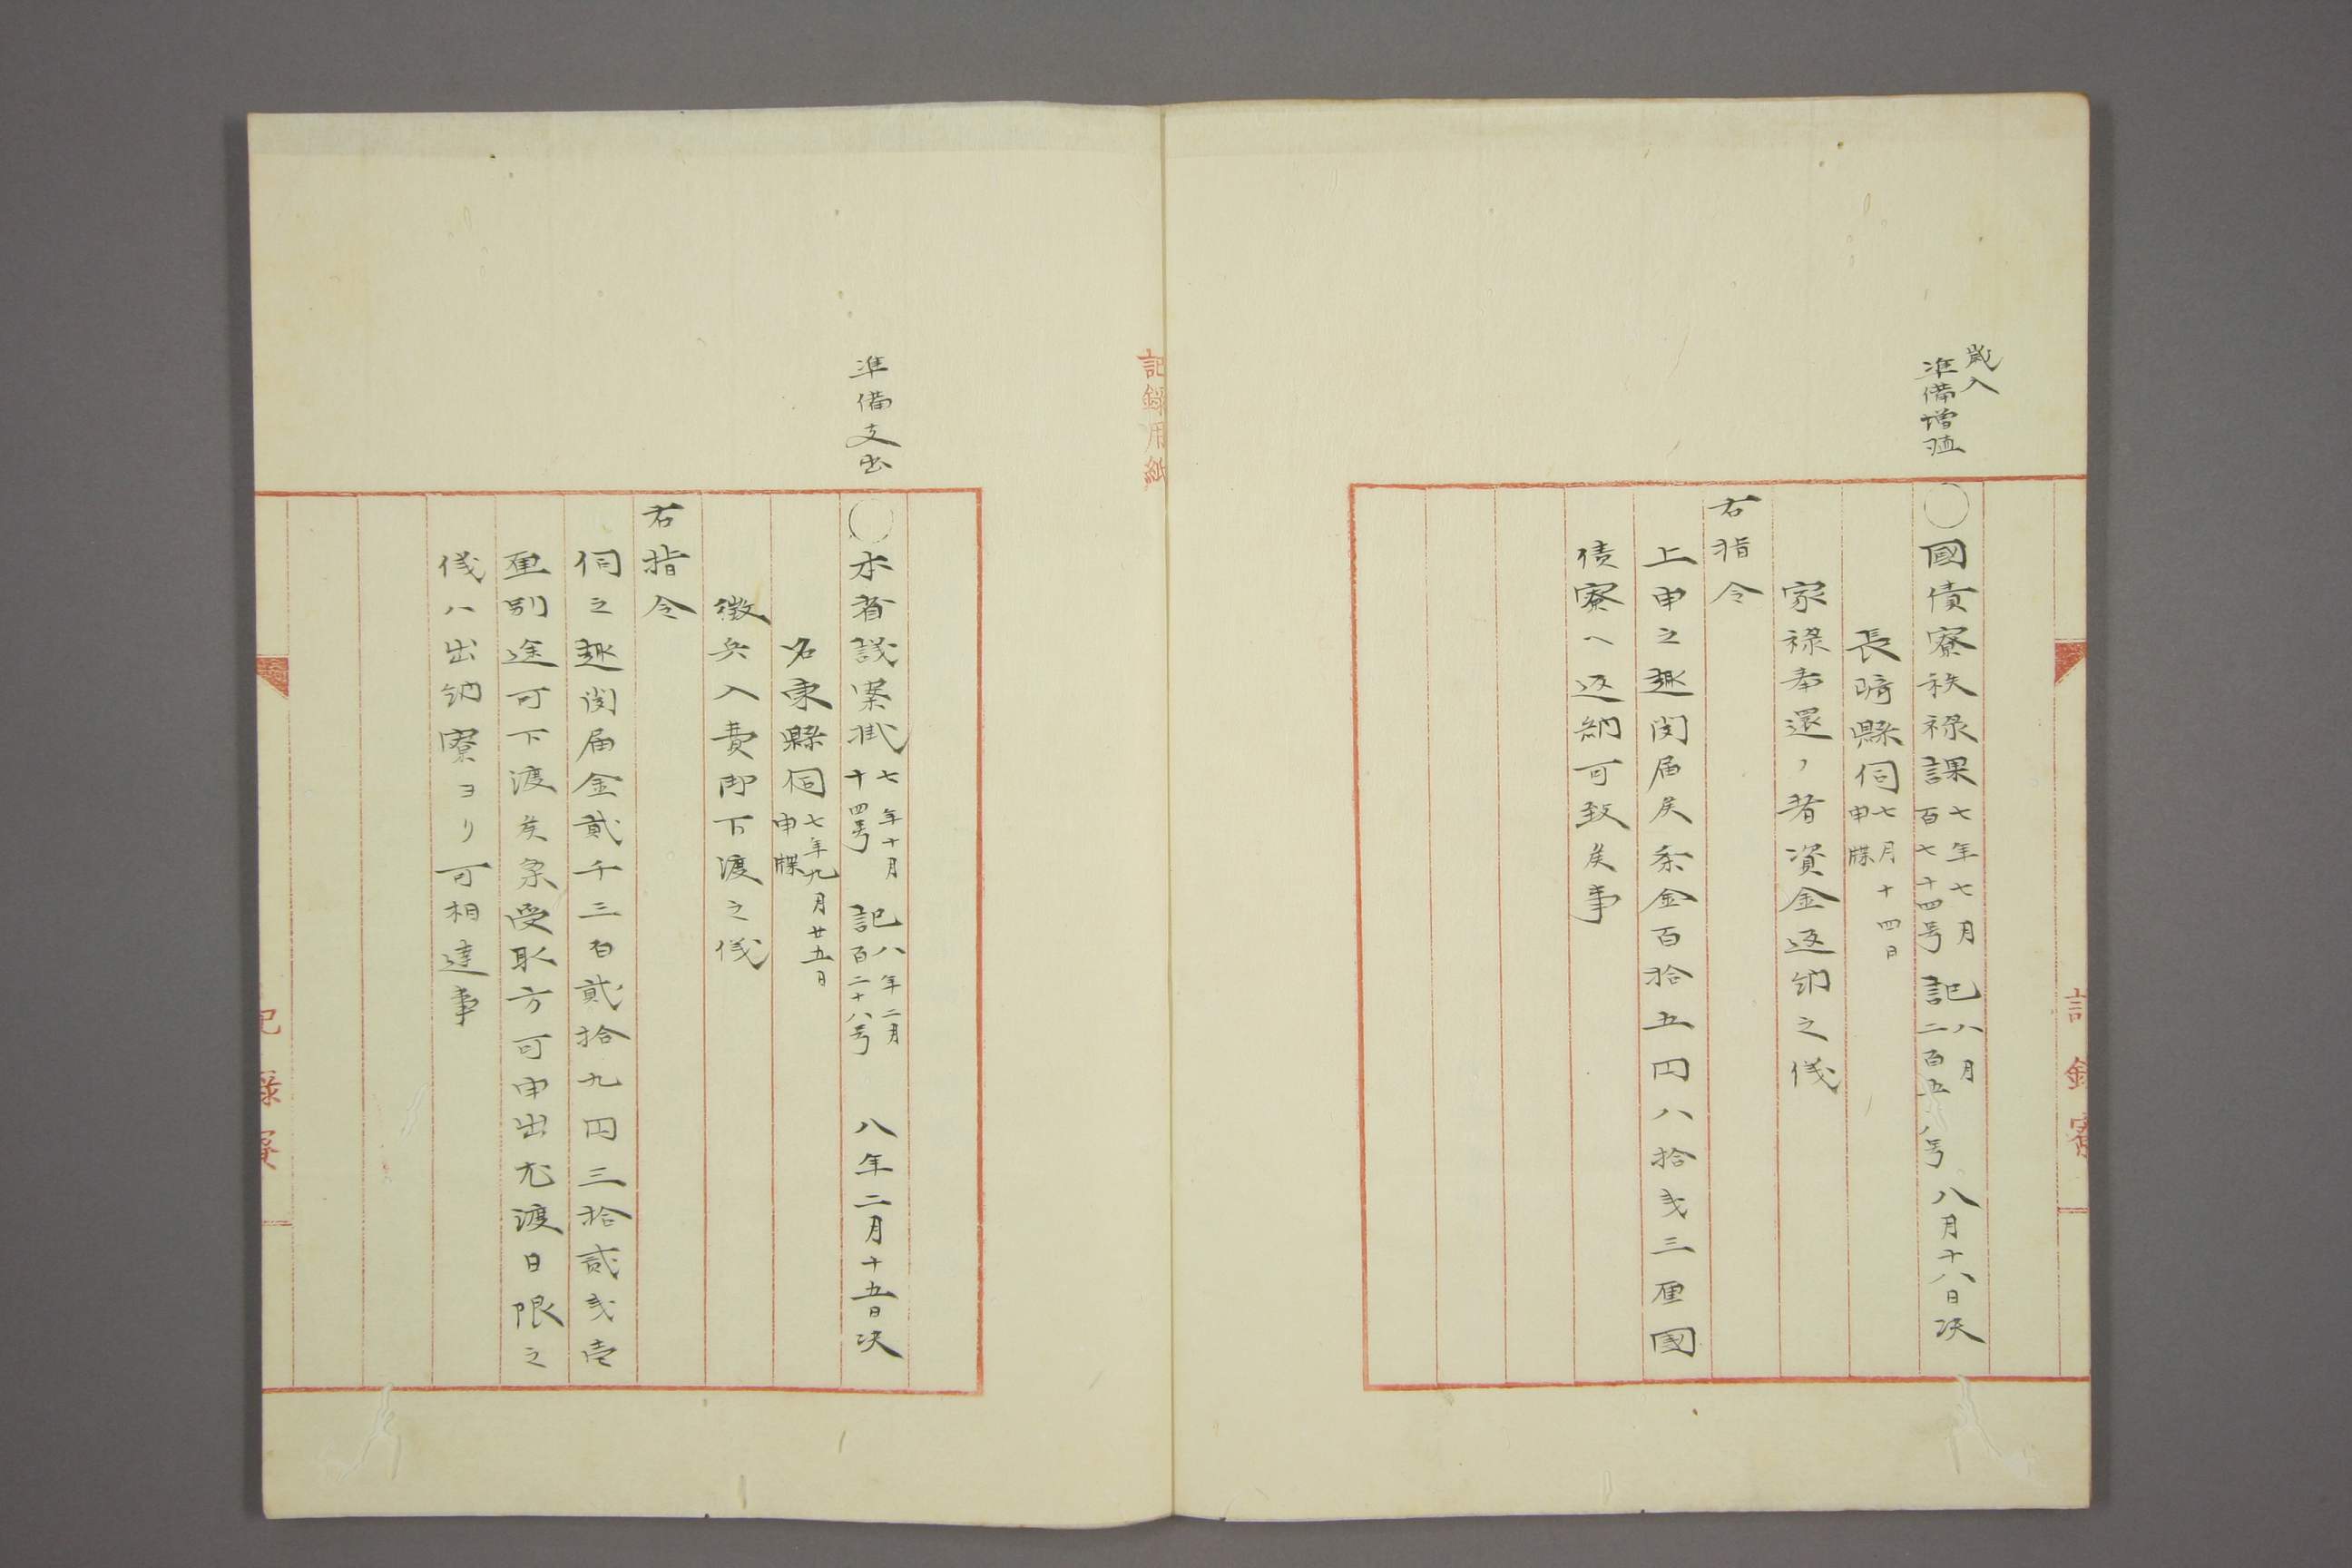 歳入
準備増殖
〇國債寮秩禄課七年七月百七十四号 記八月二百五 号 八月十八日决
長崎縣伺七月十四日申牒
家禄奉還ノ者資金返納之儀
右指令
上申之趣聞届矦条金百拾五円八拾戔三厘國
債寮ヘ返納可致矦事
記録寮
記録用紙
準備支出
〇本省議案掛七年十月十四号 記八年二月百二十八号 八年二月十五日决
名東縣伺七年九月廿五日申牒
徴兵入費御下渡之儀
右指令
伺之趣聞届金貳千三百貳拾九円三拾貳戔壱
厘別途可下渡矦条受取方可申出尤渡日限之
儀ハ出納寮ヨリ可相達事
記録寮